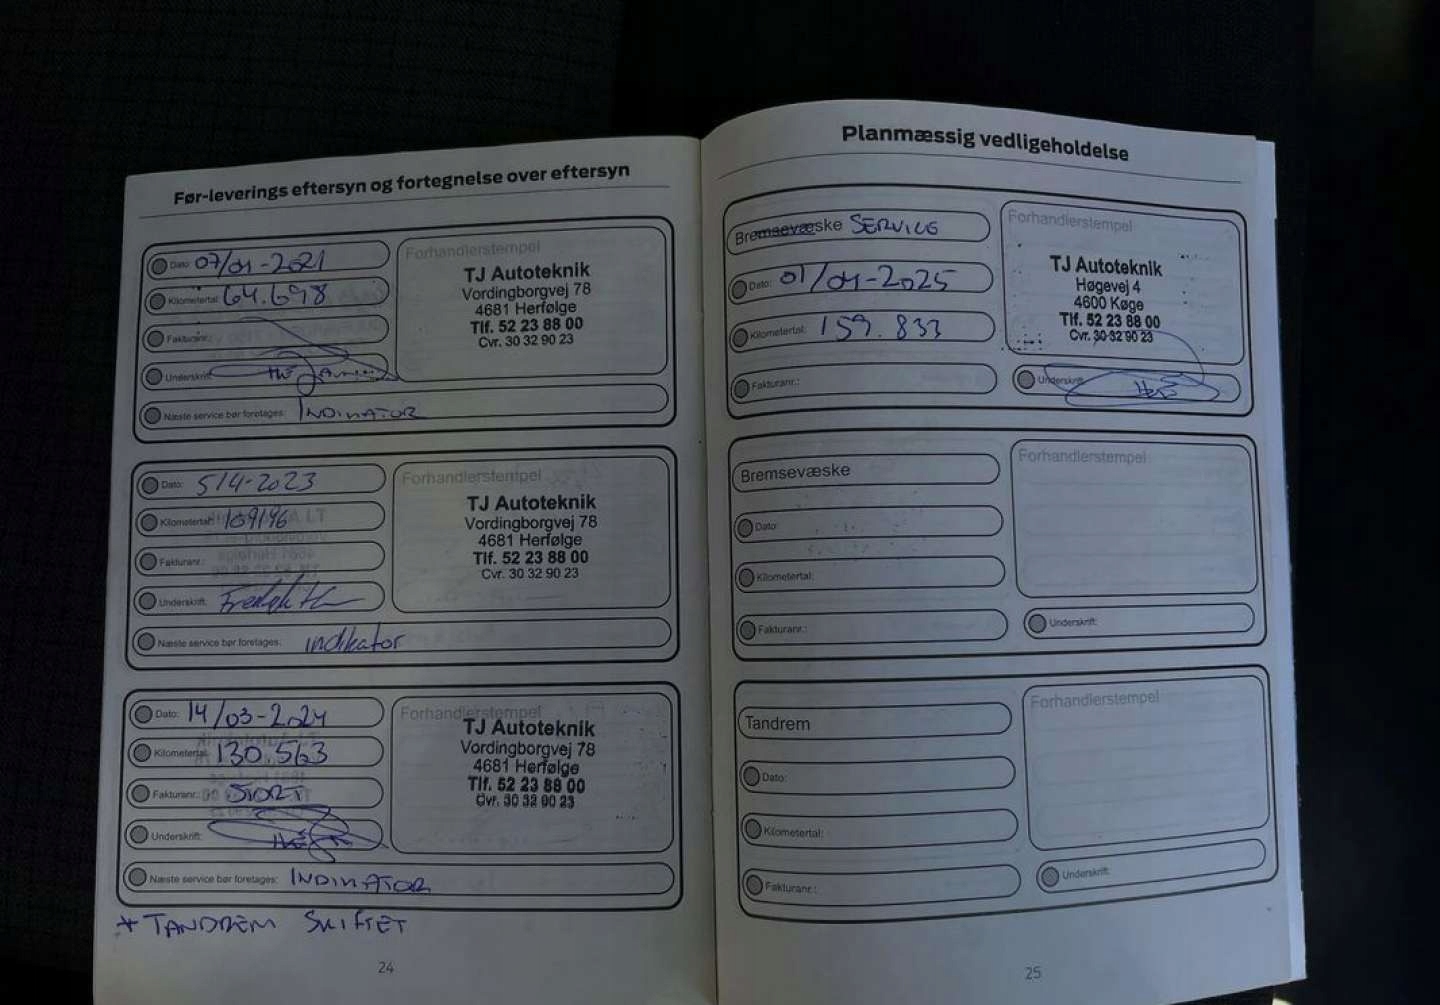 Før-leverings eftersyn og fortegnelse over eftersyn
Dato: 07/01-2021
Kilometertal: 64.698
Fakturanr.:
Underskrift:
Næste service bør foretages: INDIKATOR
Forhandlerstempel
TJ Autoteknik
Vordingborgvej 78
4681 Herfølge
Tlf. 52 23 88 00
Cvr. 30 32 90 23
Dato: 5/4-2023
Kilometertal: 109196
Fakturanr.:
Underskrift:
Næste service bør foretages: indikator
Forhandlerstempel
TJ Autoteknik
Vordingborgvej 78
4681 Herfølge
Tlf. 52 23 88 00
Cvr. 30 32 90 23
Dato: 14/03-2024
Kilometertal: 130.563
Fakturanr.: STORT
Underskrift:
Næste service bør foretages: INDIKATOR
Forhandlerstempel
TJ Autoteknik
Vordingborgvej 78
4681 Herfølge
Tlf. 52 23 88 00
Cvr. 30 32 90 23
* TANDREM SKIFTET
24
Planmæssig vedligeholdelse
Bremsevæske SERVICE
Dato: 01/04-2025
Kilometertal: 159.833
Fakturanr.:
Forhandlerstempel
TJ Autoteknik
Høgevej 4
4600 Køge
Tlf. 52 23 88 00
Cvr. 30 32 90 23
Underskrift:
Bremsevæske
Dato:
Kilometertal:
Fakturanr.:
Forhandlerstempel
Underskrift:
Tandrem
Dato:
Kilometertal:
Fakturanr.:
Forhandlerstempel
Underskrift:
25